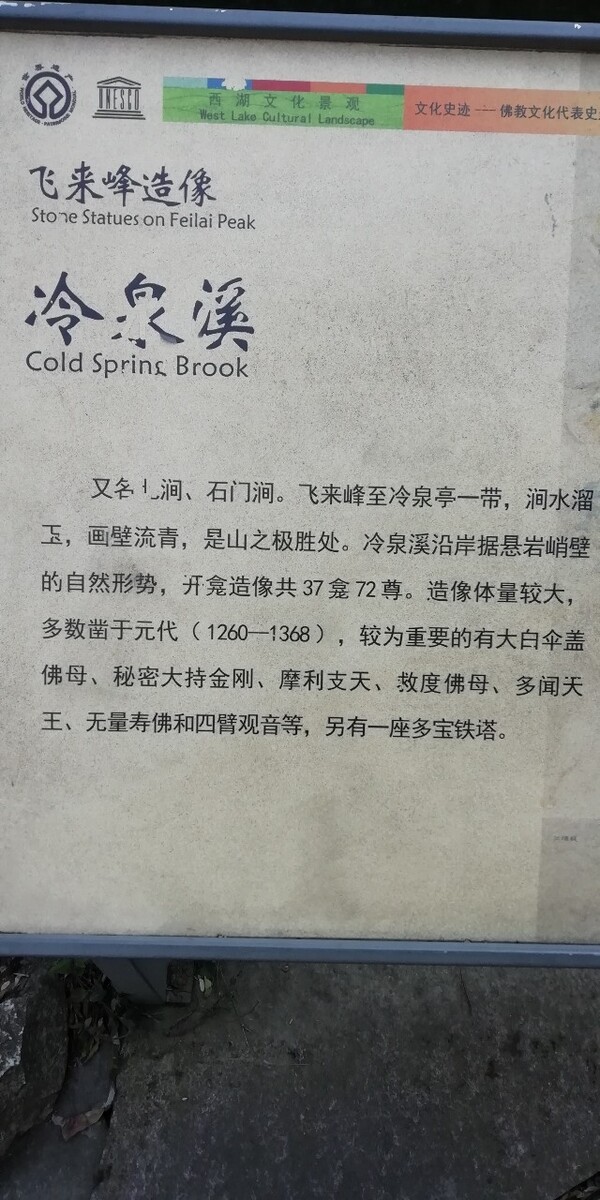 UNESCO
西湖文化景观
West Lake Cultural Landscape
文化史迹——佛教文化代表史
飞来峰造像
Stone Statues on Feilai Peak
冷泉溪
Cold Spring Brook
又名 涧、石门涧。飞来峰至冷泉亭一带，涧水溜
玉，画壁流青，是山之极胜处。冷泉溪沿岸据悬岩峭壁
的自然形势，开龛造像共37龛72尊。造像体量较大，
多数凿于元代（1260—1368），较为重要的有大白伞盖
佛母、秘密大持金刚、摩利支天、救度佛母、多闻天
王、无量寿佛和四臂观音等，另有一座多宝铁塔。